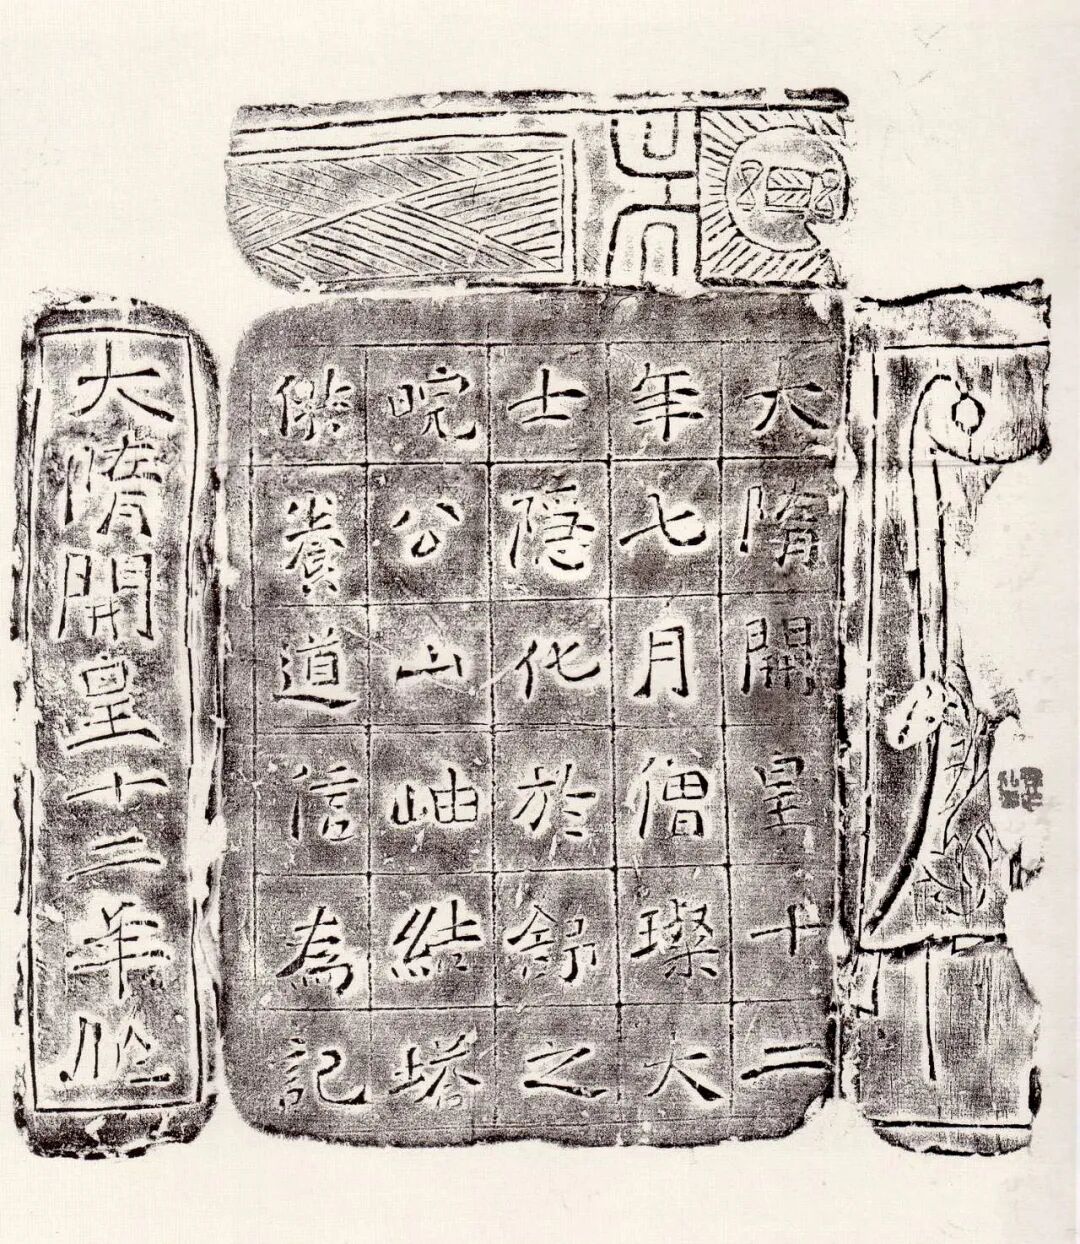 大隋開皇十二
年七月僧璨大
士隱化於舒之
晥公山岫結塔
供養道信為記
大隋開皇十二年作